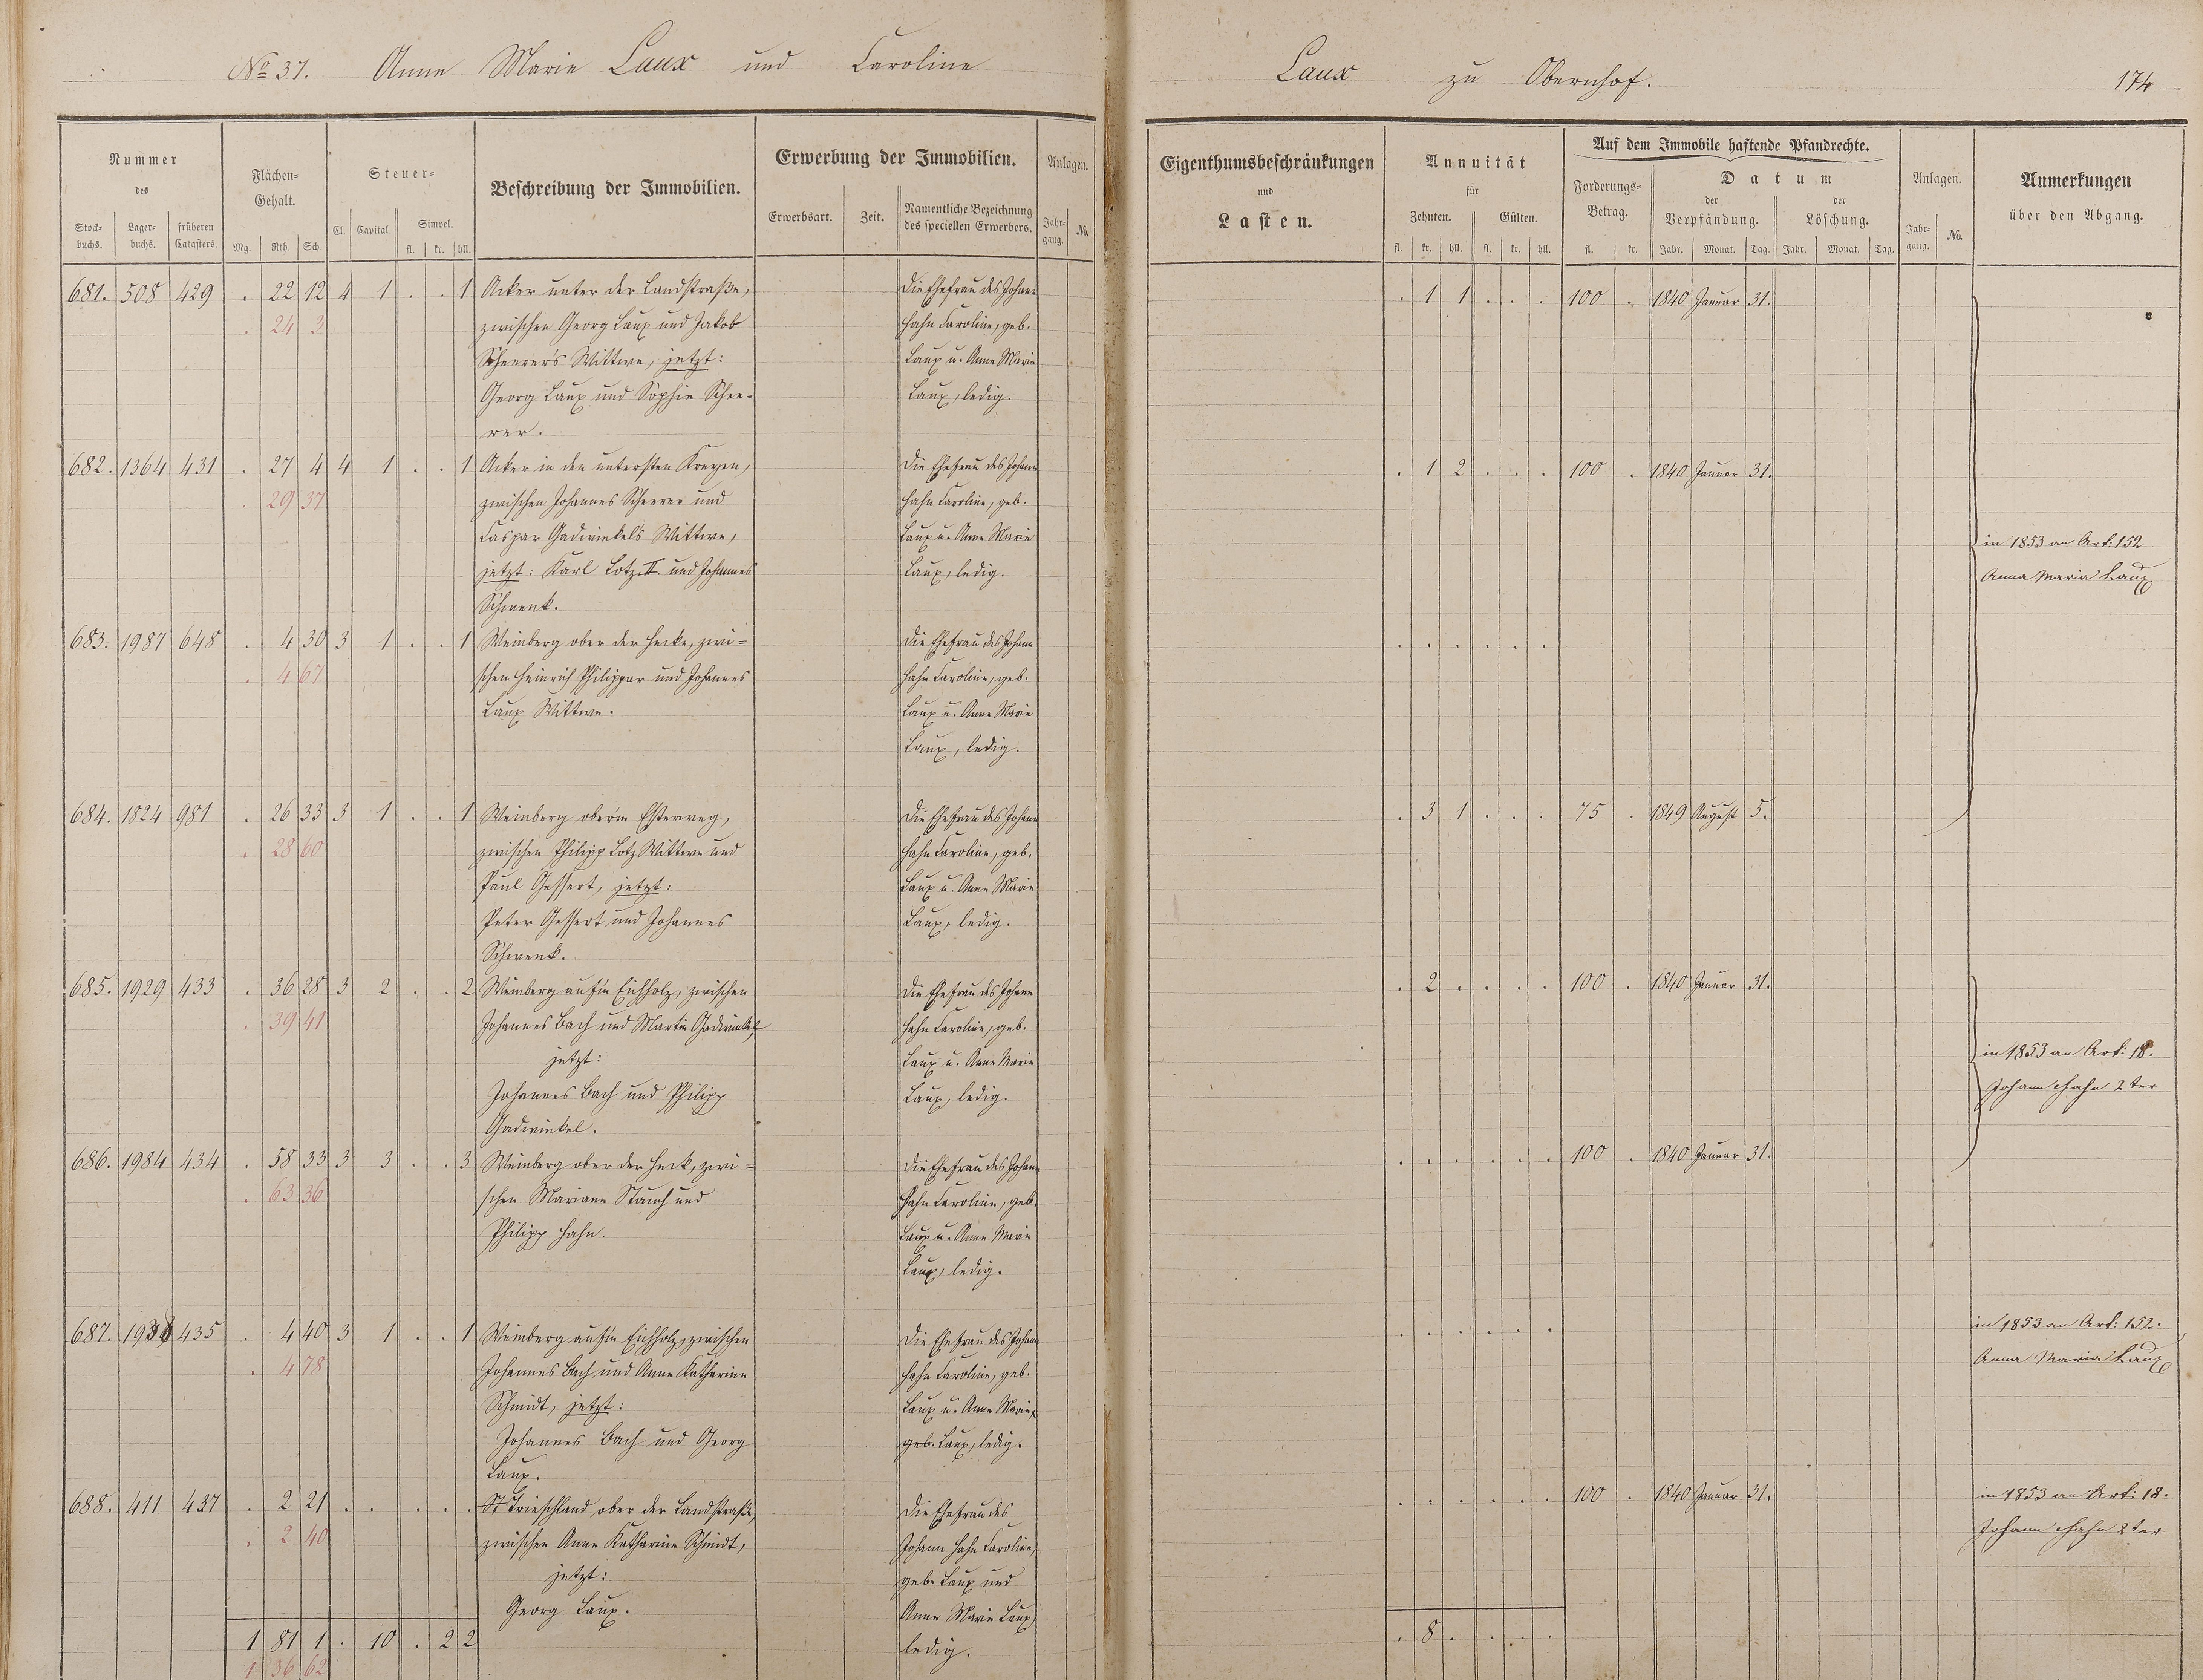 No 37. Anne Marie Laux und Caroline Laux zu Obernhof. 174
Nummer des Flächen-Gehalt. Steuer- Beschreibung der Immobilien. Erwerbung der Immobilien. Anlagen. Eigenthumsbeschränkungen und Lasten. Annuität für Auf dem Immobile haftende Pfandrechte. Anlagen. Anmerkungen über den Abgang.
Stock-buchs. Lager-buchs. früheren Catasters. Mg. Rth. Sch. Cl. Capital. Simpel. fl. kr. hll. Erwerbsart. Zeit. Namentliche Bezeichnung des speciellen Erwerbers. Jahr-gang. No. Zehnten. fl. kr. hll. Gülten. fl. kr. hll. Forderungs-Betrag. fl. kr. Datum der Verpfändung. Jahr. Monat. Tag. der Löschung. Jahr. Monat. Tag. Jahr-gang. No.
681. 508 429 . 22 12 4 1 . . 1 Acker unter der Landstraße, die Ehefrau des Johann . 1 1 . . . 100 . 1840 Januar 31.
. 24 3 zwischen Georg Laux und Jakob Hahn Caroline, geb.
Scheerer's Wittwe, jetzt: Laux u. Anne Marie
Georg Laux und Sophie Schee- Laux, ledig.
rer.
682. 1364 431 . 27 4 4 1 . . 1 Acker in den untersten Kreyen, die Ehefrau des Johann . 1 2 . . . 100 . 1840 Januar 31.
. 29 37 zwischen Johannes Scheerer und Hahn Caroline, geb.
Caspar Gadwinkel's Wittwe, Laux u. Anne Marie in 1853 an Art: 152
jetzt: Karl Lotz II. und Johannes Laux, ledig. Anna Maria Laux
Schwenk.
683. 1987 648 . 4 30 3 1 . . 1 Weinberg ober der Hecke, zwi- die Ehefrau des Johann . . . . . .
. 4 67 schen Heinrich Philippar und Johannes Hahn Caroline, geb.
Laux Wittwe. Laux u. Anne Marie
Laux, ledig.
684. 1824 981 . 26 33 3 1 . . 1 Weinberg ober'm Esterweg, die Ehefrau des Johann . 3 1 . . . 75 . 1849 August 5.
. 28 60 zwischen Philipp Lotz Wittwe und Hahn Caroline, geb.
Paul Gessert, jetzt: Laux u. Anne Marie
Peter Gessert und Johannes Laux, ledig.
Schwenk.
685. 1929 433 . 36 28 3 2 . . 2 Weinberg auf'm Eichholz, zwischen die Ehefrau des Johann . 2 . . . . 100 . 1840 Januar 31.
. 39 41 Johannes Bach und Martin Gadwinkel, Hahn Caroline, geb.
jetzt: Laux u. Anne Marie in 1853 an Art: 18.
Johannes Bach und Philipp Laux, ledig. Johann Hahn 2ter
Gadwinkel.
686. 1984 434 . 58 33 3 3 . . 3 Weinberg ober der Heck, zwi- die Ehefrau des Johann . . . . . . 100 . 1840 Januar 31.
. 63 36 schen Mariane Stauch und Hahn Caroline, geb.
Philipp Hahn. Laux u. Anne Marie
Laux, ledig.
687. 435 . 4 40 3 1 . . 1 Weinberg auf'm Eichholz, zwischen die Ehefrau des Johann . . . . . . in 1853 an Art: 152.
. 4 78 Johannes Bach und Anne Katharine Hahn Caroline, geb. Anna Maria Laux
Schmidt, jetzt: Laux u. Anne Marie,
Johannes Bach und Georg geb. Laux, ledig.
Laux.
688. 411 437 . 2 21 . . . . . St Trieschland ober der Landstraße, die Ehefrau des . . . . . . 100 . 1840 Januar 31. in 1853 an Art: 18.
. 2 40 zwischen Anne Katharine Schmidt, Johann Hahn Caroline, Johann Hahn 2ter
jetzt: geb. Laux und
Georg Laux. Anne Marie Laux,
1 81 1 . 10 . 2 2 ledig. . 8 . . . .
1 36 62